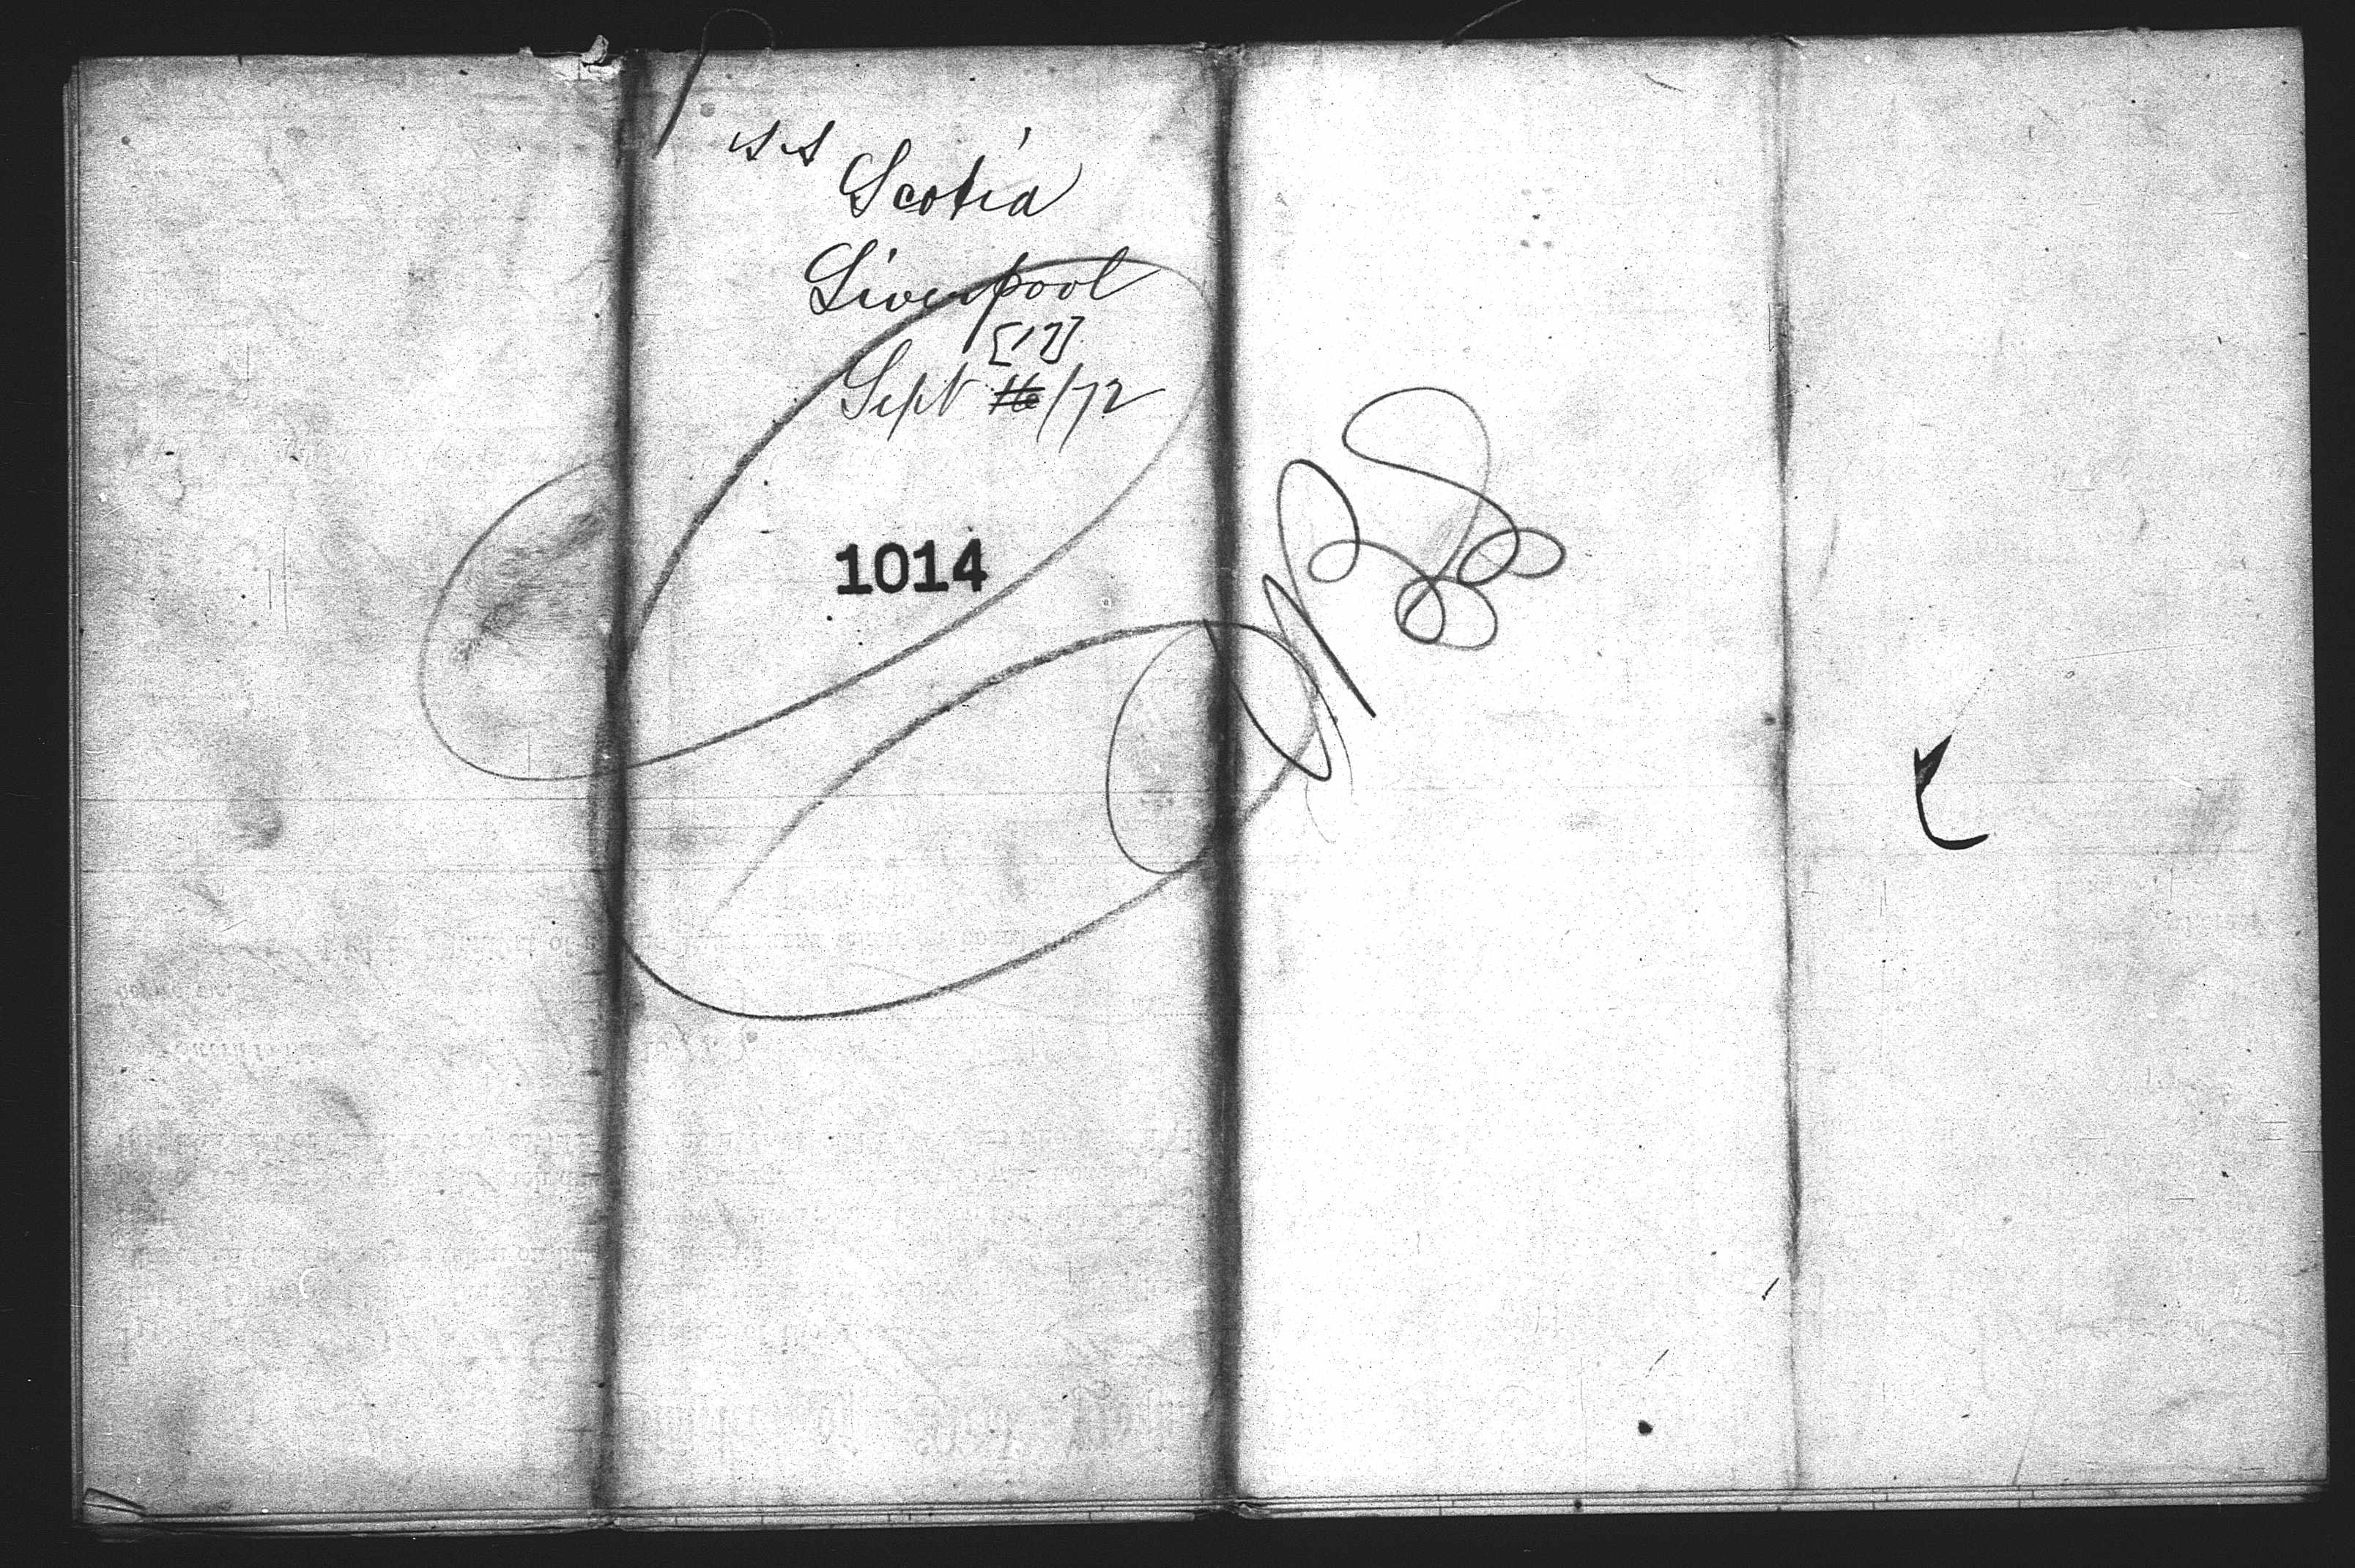 SS
Scotia
Liverpool
[17]
Sept 16/72
1014